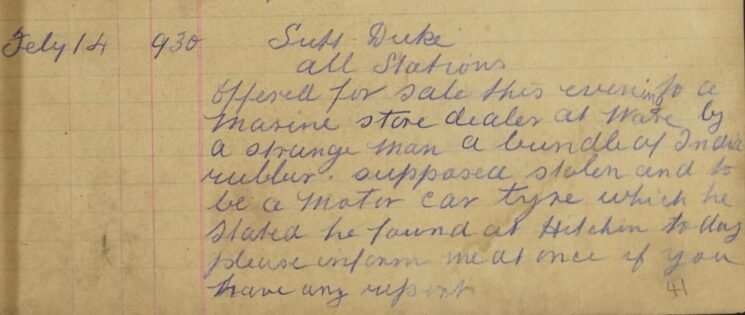 Feby 14 930 Supt Duke
all Stations
Offered for sale this evening to a
Marine store dealer at Ware by
a strange man a bundle of India
rubber. supposed stolen and to
be a Motor car tyre which he
stated he found at Hitchin to day
please inform me at once if you
have any report 41